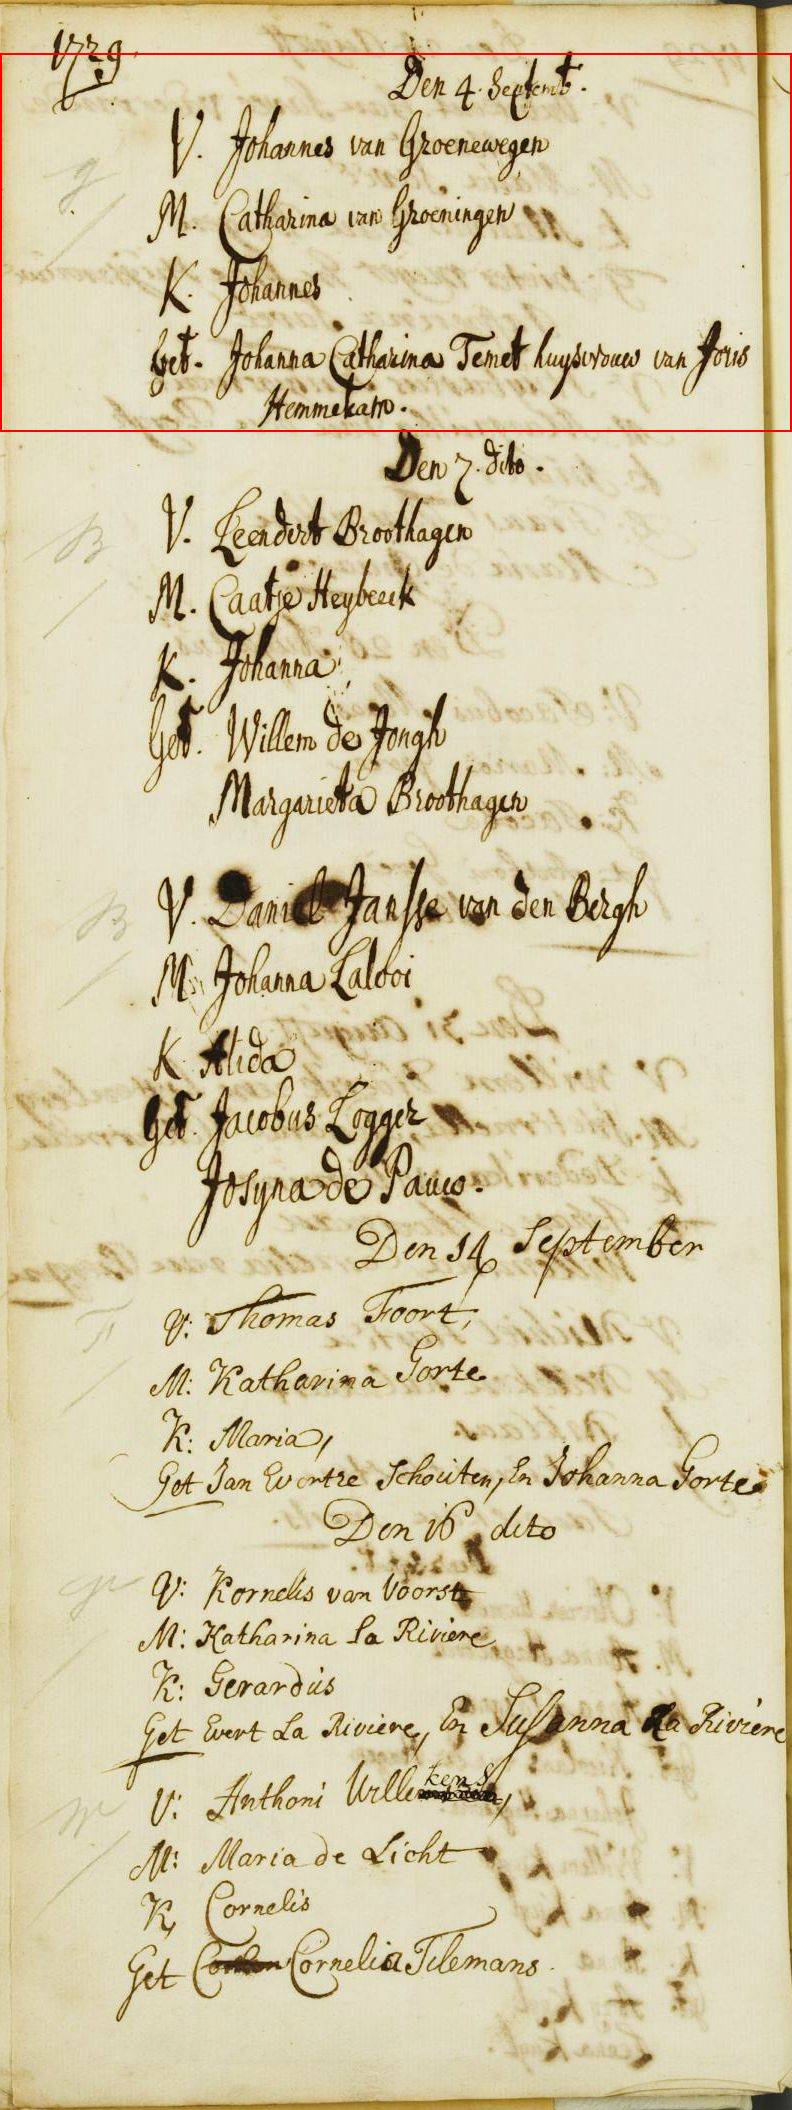 1729.
Den 4. Septemb.
V. Johannes van Groenewegen
g
M. Catharina van Groeningen
K. Johannes
Get. Johanna Catharina Temet huysvrouw van Joris
Hemmekam.
Den 7. dito.
V. Leendert Broothagen
B
M. Caatje Heybeeck
K. Johanna
Get. Willem de Jongh
Margarieta Broothagen
V. Daniel Jansse van den Bergh
B
M. Johanna Lalooi
K Alida
Get. Jacobus Logger
Josyna de Pauw.
Den 14 September
V: Thomas Foort,
F
M: Katharina Gorte
K: Maria,
Get Jan Evertze Schouten, En Johanna Gorte
Den 16 dito
V: Kornelis van Voorst
M: Katharina La Riviere
K: Gerardus
Get Evert La Riviere, En Susanna La Riviere
kens
V: Anthoni Wille
W
M: Maria de Licht
K, Cornelis
Get Cornelia Tilemans.